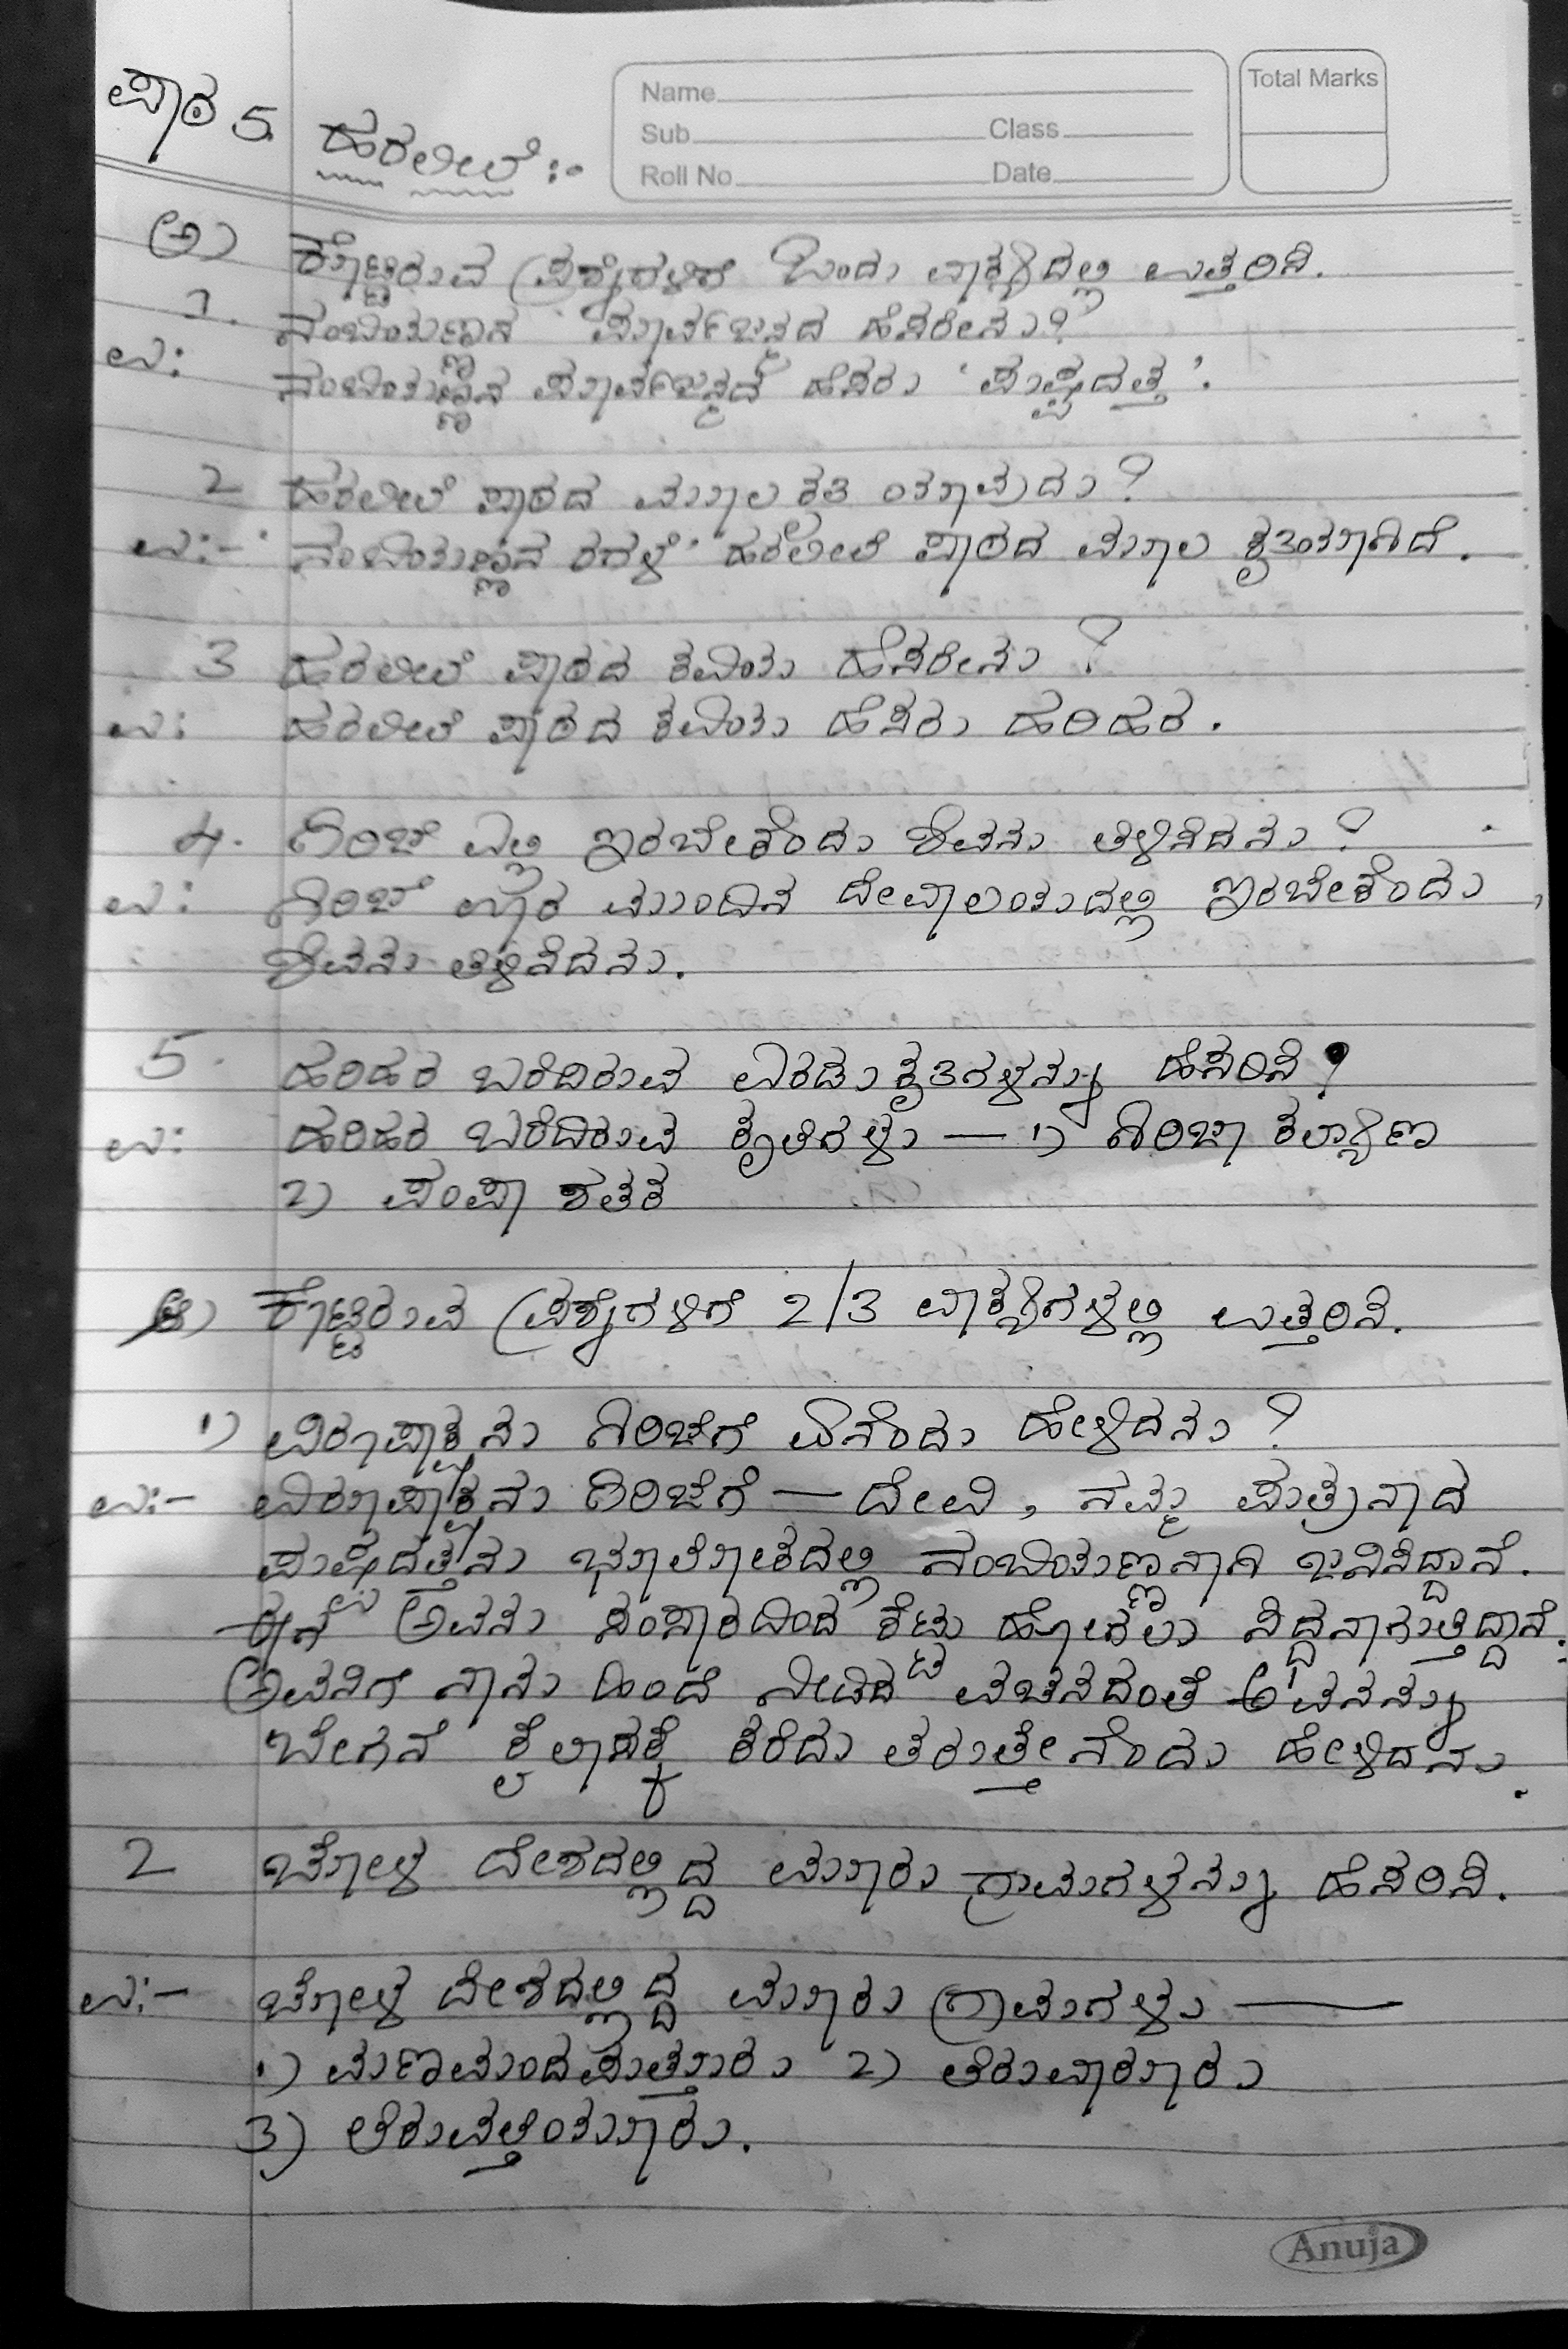 ಪಾಠ 5. ಹರಲೀಲೆ :-
Name
Sub Class
Roll No Date
Total Marks
ಅ) ಕೊಟ್ಟಿರುವ ಪ್ರಶ್ನೆಗಳಿಗೆ ಒಂದು ವಾಕ್ಯದಲ್ಲಿ ಉತ್ತರಿಸಿ.
1. ನಂಬಿಯಣ್ಣನ ಪೂರ್ವಜನ್ಮದ ಹೆಸರೇನು?
ಉ: ನಂಬಿಯಣ್ಣನ ಪೂರ್ವಜನ್ಮದ ಹೆಸರು 'ಪುಷ್ಪದತ್ತ'.
2 ಹರಲೀಲೆ ಪಾಠದ ಮೂಲ ಕೃತಿ ಯಾವುದು?
ಉ:- 'ನಂಬಿಯಣ್ಣನ ರಗಳೆ' ಹರಲೀಲೆ ಪಾಠದ ಮೂಲ ಕೃತಿಯಾಗಿದೆ.
3 ಹರಲೀಲೆ ಪಾಠದ ಕವಿಯ ಹೆಸರೇನು?
ಉ: ಹರಲೀಲೆ ಪಾಠದ ಕವಿಯ ಹೆಸರು ಹರಿಹರ.
4. ಗಿರಿಜೆ ಎಲ್ಲಿ ಇರಬೇಕೆಂದು ಶಿವನು ತಿಳಿಸಿದನು?
ಉ: ಗಿರಿಜೆ ಊರ ಮುಂದಿನ ದೇವಾಲಯದಲ್ಲಿ ಇರಬೇಕೆಂದು
ಶಿವನು ತಿಳಿಸಿದನು.
5. ಹರಿಹರ ಬರೆದಿರುವ ಎರಡು ಕೃತಿಗಳನ್ನು ಹೆಸರಿಸಿ?
ಉ: ಹರಿಹರ ಬರೆದಿರುವ ಕೃತಿಗಳು — 1) ಗಿರಿಜಾ ಕಲ್ಯಾಣ
2) ಪಂಪಾ ಶತಕ
ಆ) ಕೊಟ್ಟಿರುವ ಪ್ರಶ್ನೆಗಳಿಗೆ 2/3 ವಾಕ್ಯಗಳಲ್ಲಿ ಉತ್ತರಿಸಿ.
1) ವಿರೂಪಾಕ್ಷನು ಗಿರಿಜೆಗೆ ಏನೆಂದು ಹೇಳಿದನು?
ಉ:- ವಿರೂಪಾಕ್ಷನು ಗಿರಿಜೆಗೆ — ದೇವಿ, ನಮ್ಮ ಪುತ್ರನಾದ
ಪುಷ್ಪದತ್ತನು ಭೂಲೋಕದಲ್ಲಿ ನಂಬಿಯಣ್ಣನಾಗಿ ಜನಿಸಿದ್ದಾನೆ.
ಈಗ ಅವನು ಸಂಸಾರದಿಂದ ಕೆಟ್ಟು ಹೋಗಲು ಸಿದ್ದನಾಗುತ್ತಿದ್ದಾನೆ.
ಅವನಿಗೆ ನಾನು ಹಿಂದೆ ನೀಡಿದ ವಚನದಂತೆ ಅವನನ್ನು
ಬೇಗನೆ ಕೈಲಾಸಕ್ಕೆ ಕರೆದು ತರುತ್ತೇನೆಂದು ಹೇಳಿದನು.
2 ಚೋಳ ದೇಶದಲ್ಲಿದ್ದ ಮೂರು ಗ್ರಾಮಗಳನ್ನು ಹೆಸರಿಸಿ.
ಉ:- ಚೋಳ ದೇಶದಲ್ಲಿದ್ದ ಮೂರು ಗ್ರಾಮಗಳು —
1) ಮಣಮಂದಪುತ್ತೂರು 2) ತಿರುವಾರೂರು
3) ತಿರುವತ್ತಿಯೂರು.
Anuja